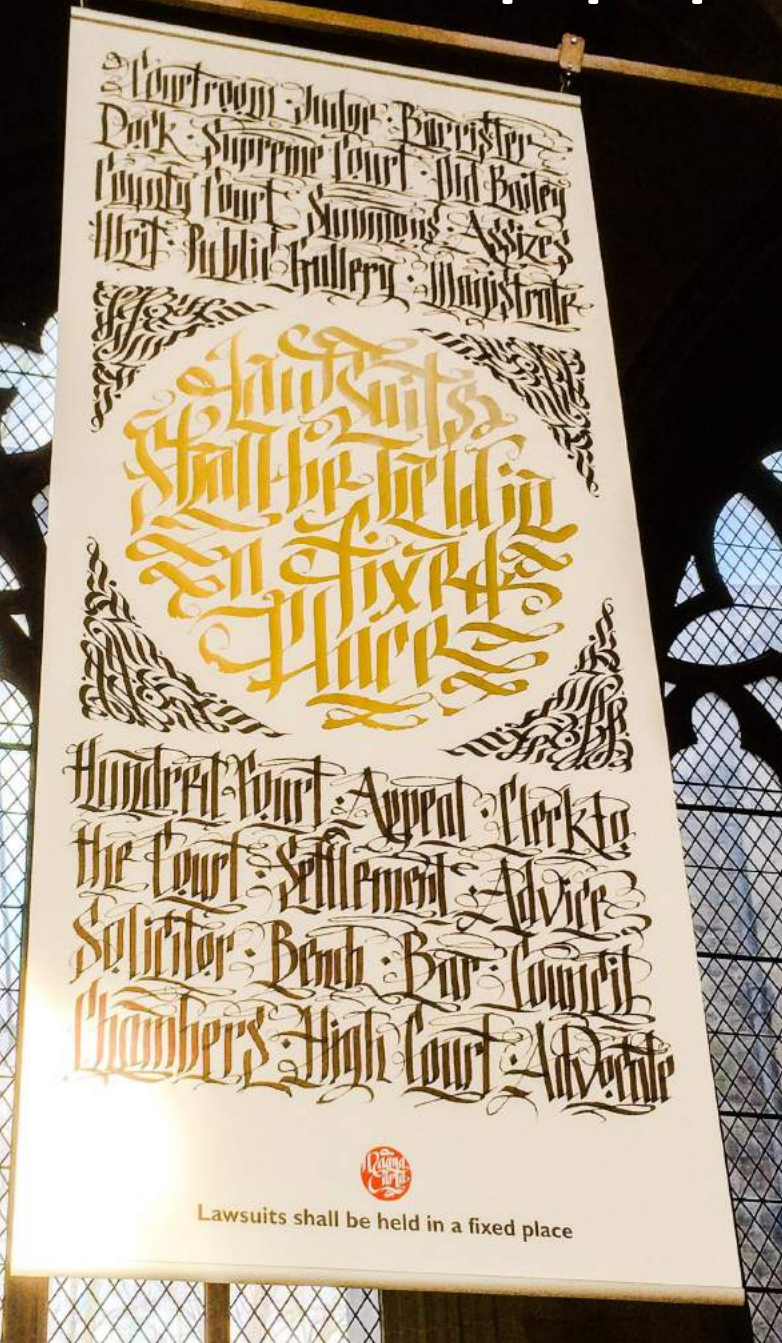 Courtroom · Judge · Barrister
Dock · Supreme Court · Old Bailey
County Court · Summons · Assizes
Writ · Public Gallery · Magistrate
Lawsuits
Shall be held in
a fixed
Place
Hundred Court · Appeal · Clerk to
the Court · Settlement · Advice
Solicitor · Bench · Bar · Council
Chambers · High Court · Advocate
Magna
Carta
Lawsuits shall be held in a fixed place